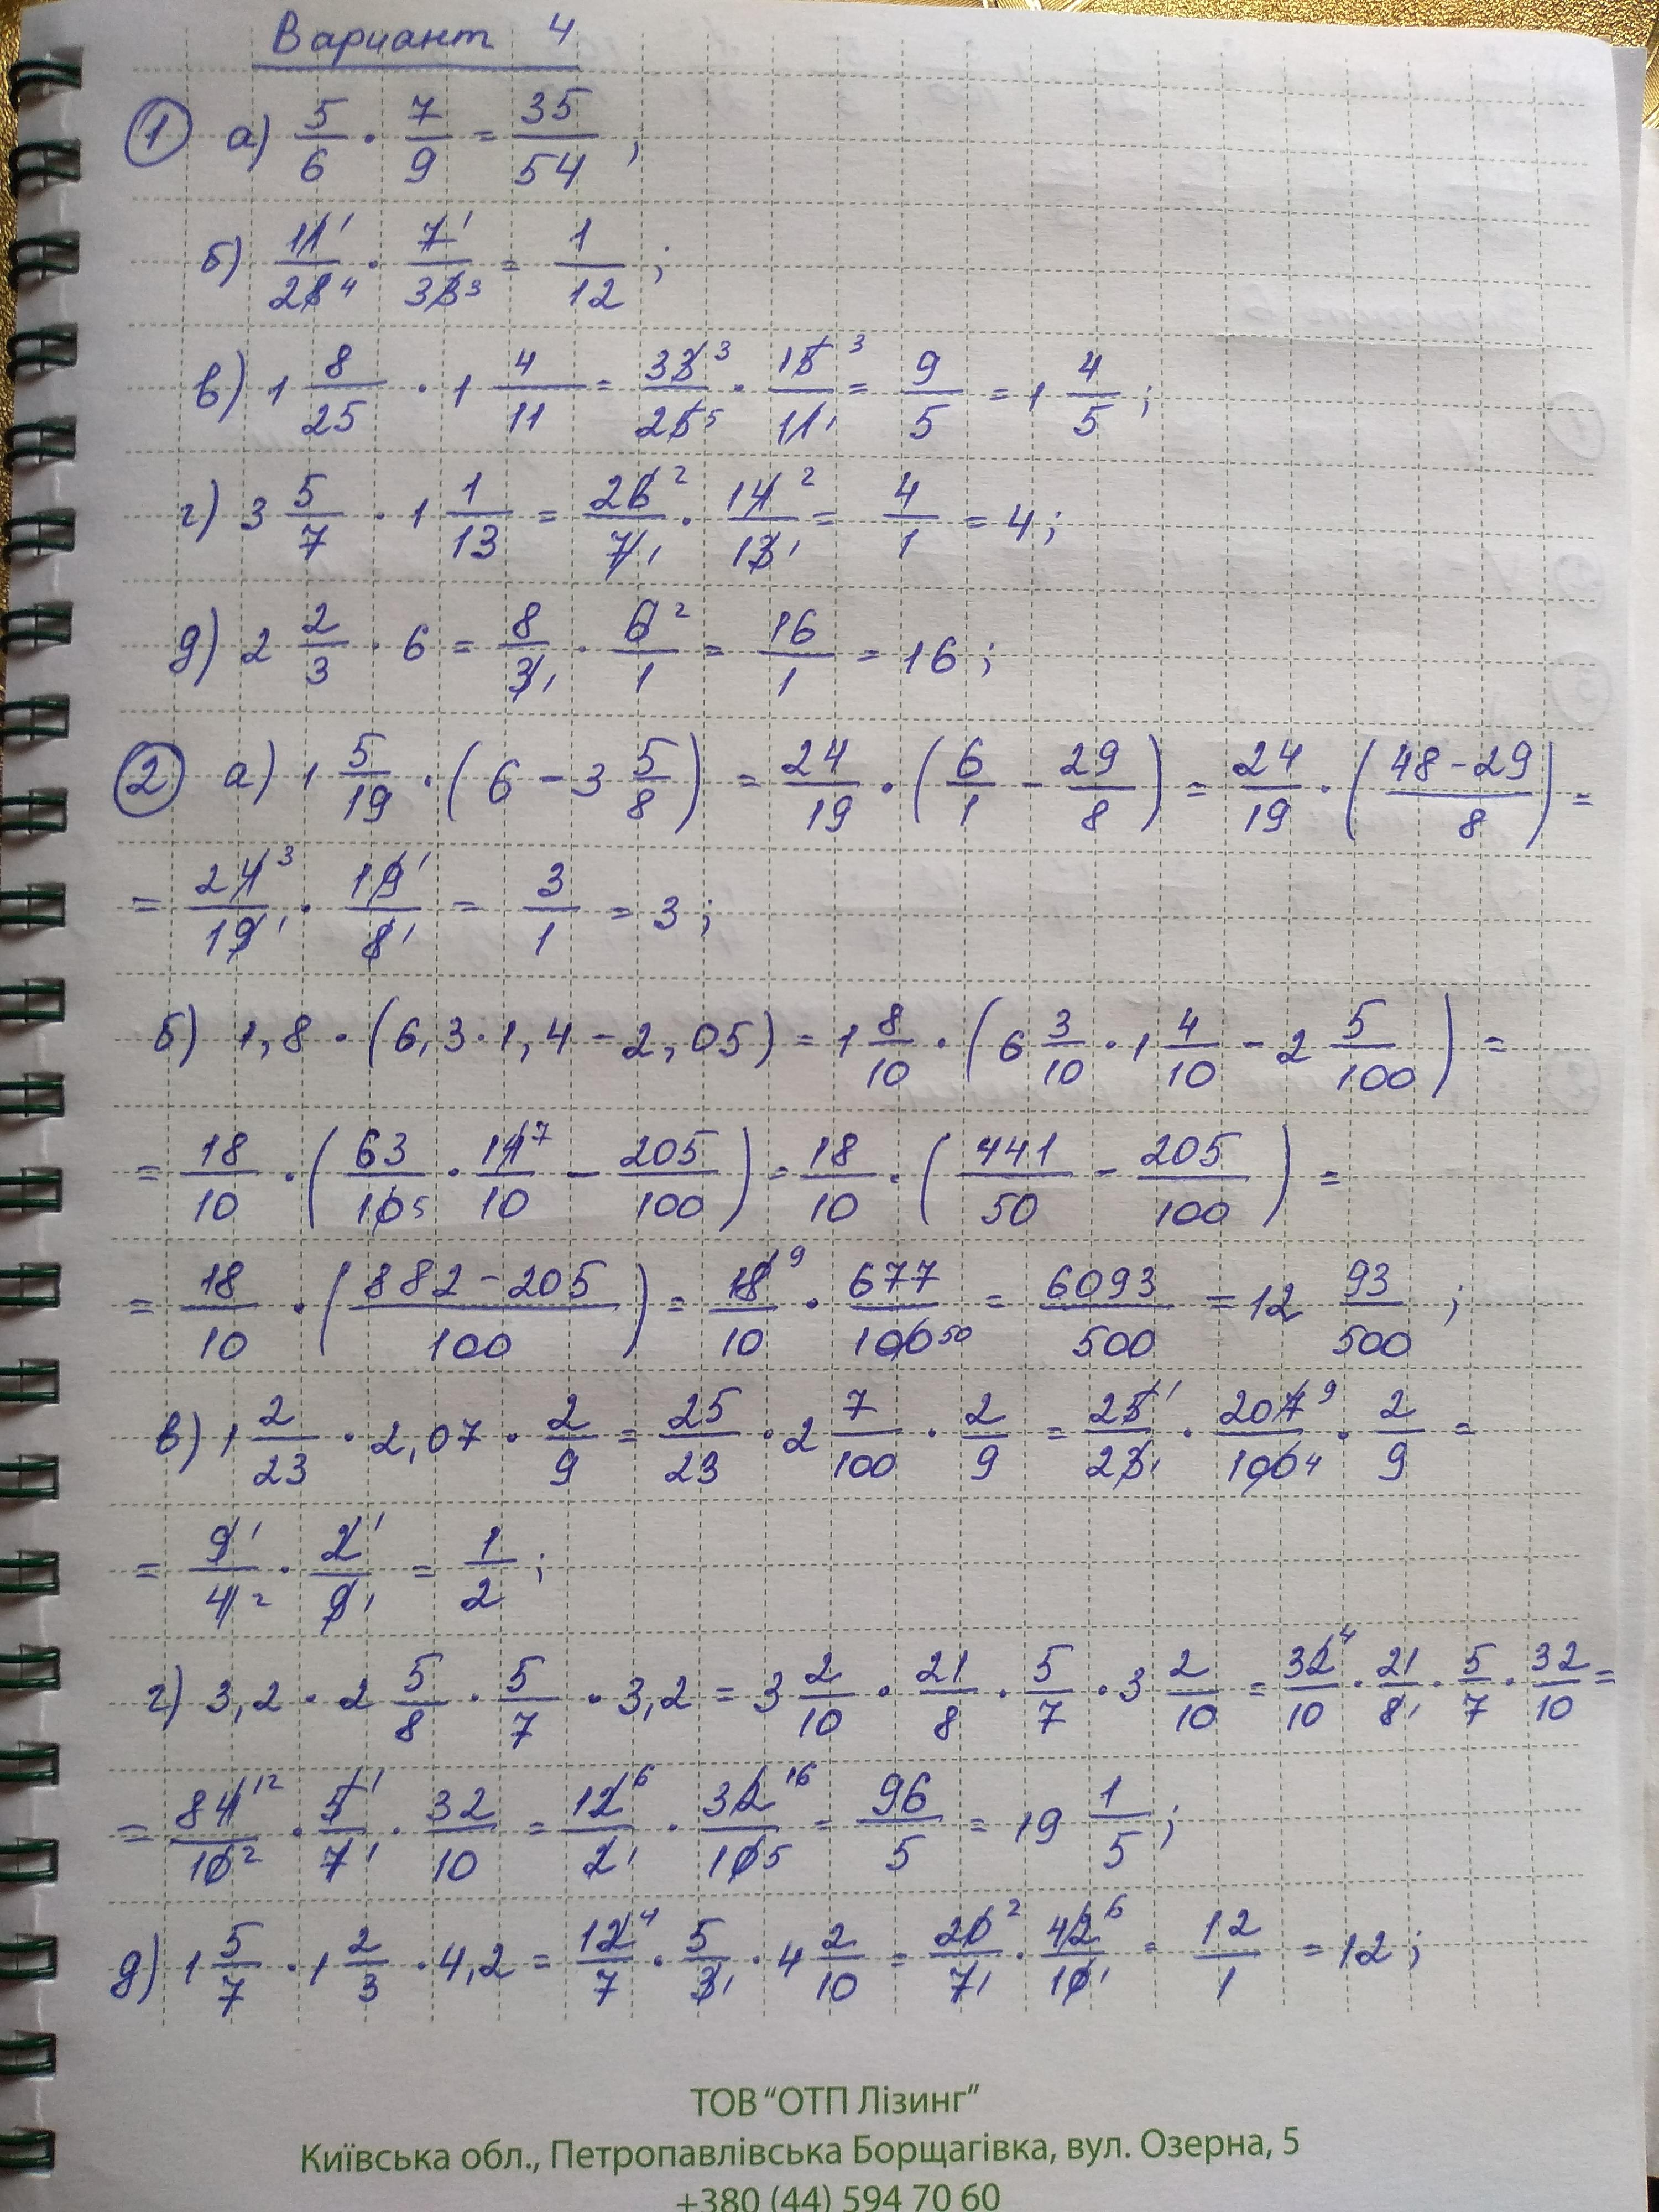 Вариант 4
① а) 5/6 · 7/9 = 35/54 ;
б) 11¹/28₄ · 7¹/33₃ = 1/12 ;
в) 1 8/25 · 1 4/11 = 33³/25₅ · 15³/11₁ = 9/5 = 1 4/5 ;
г) 3 5/7 · 1 1/13 = 26²/7₁ · 14²/13₁ = 4/1 = 4 ;
д) 2 2/3 · 6 = 8/3₁ · 6²/1 = 16/1 = 16 ;
② а) 1 5/19 · ( 6 - 3 5/8 ) = 24/19 · ( 6/1 - 29/8 ) = 24/19 · ( 48-29/8 ) =
= 24³/19₁ · 19¹/8₁ = 3/1 = 3 ;
б) 1,8 · (6,3 · 1,4 - 2,05) = 1 8/10 · ( 6 3/10 · 1 4/10 - 2 5/100 ) =
= 18/10 · ( 63/10₅ · 14⁷/10 - 205/100 ) = 18/10 · ( 441/50 - 205/100 ) =
= 18/10 · ( 882-205/100 ) = 18⁹/10 · 677/100₅₀ = 6093/500 = 12 93/500 ;
в) 1 2/23 · 2,07 · 2/9 = 25/23 · 2 7/100 · 2/9 = 25¹/23₁ · 207⁹/100₄ · 2/9 =
= 9¹/4₂ · 2¹/9₁ = 1/2 ;
г) 3,2 · 2 5/8 · 5/7 · 3,2 = 3 2/10 · 21/8 · 5/7 · 3 2/10 = 32⁴/10 · 21/8₁ · 5/7 · 32/10 =
= 84¹²/10₂ · 5¹/7₁ · 32/10 = 12⁶/2₁ · 32¹⁶/10₅ = 96/5 = 19 1/5 ;
д) 1 5/7 · 1 2/3 · 4,2 = 12⁴/7 · 5/3₁ · 4 2/10 = 20²/7₁ · 42⁶/10₁ = 12/1 = 12 ;
ТОВ “ОТП Лізинг”
Київська обл., Петропавлівська Борщагівка, вул. Озерна, 5
+380 (44) 594 70 60